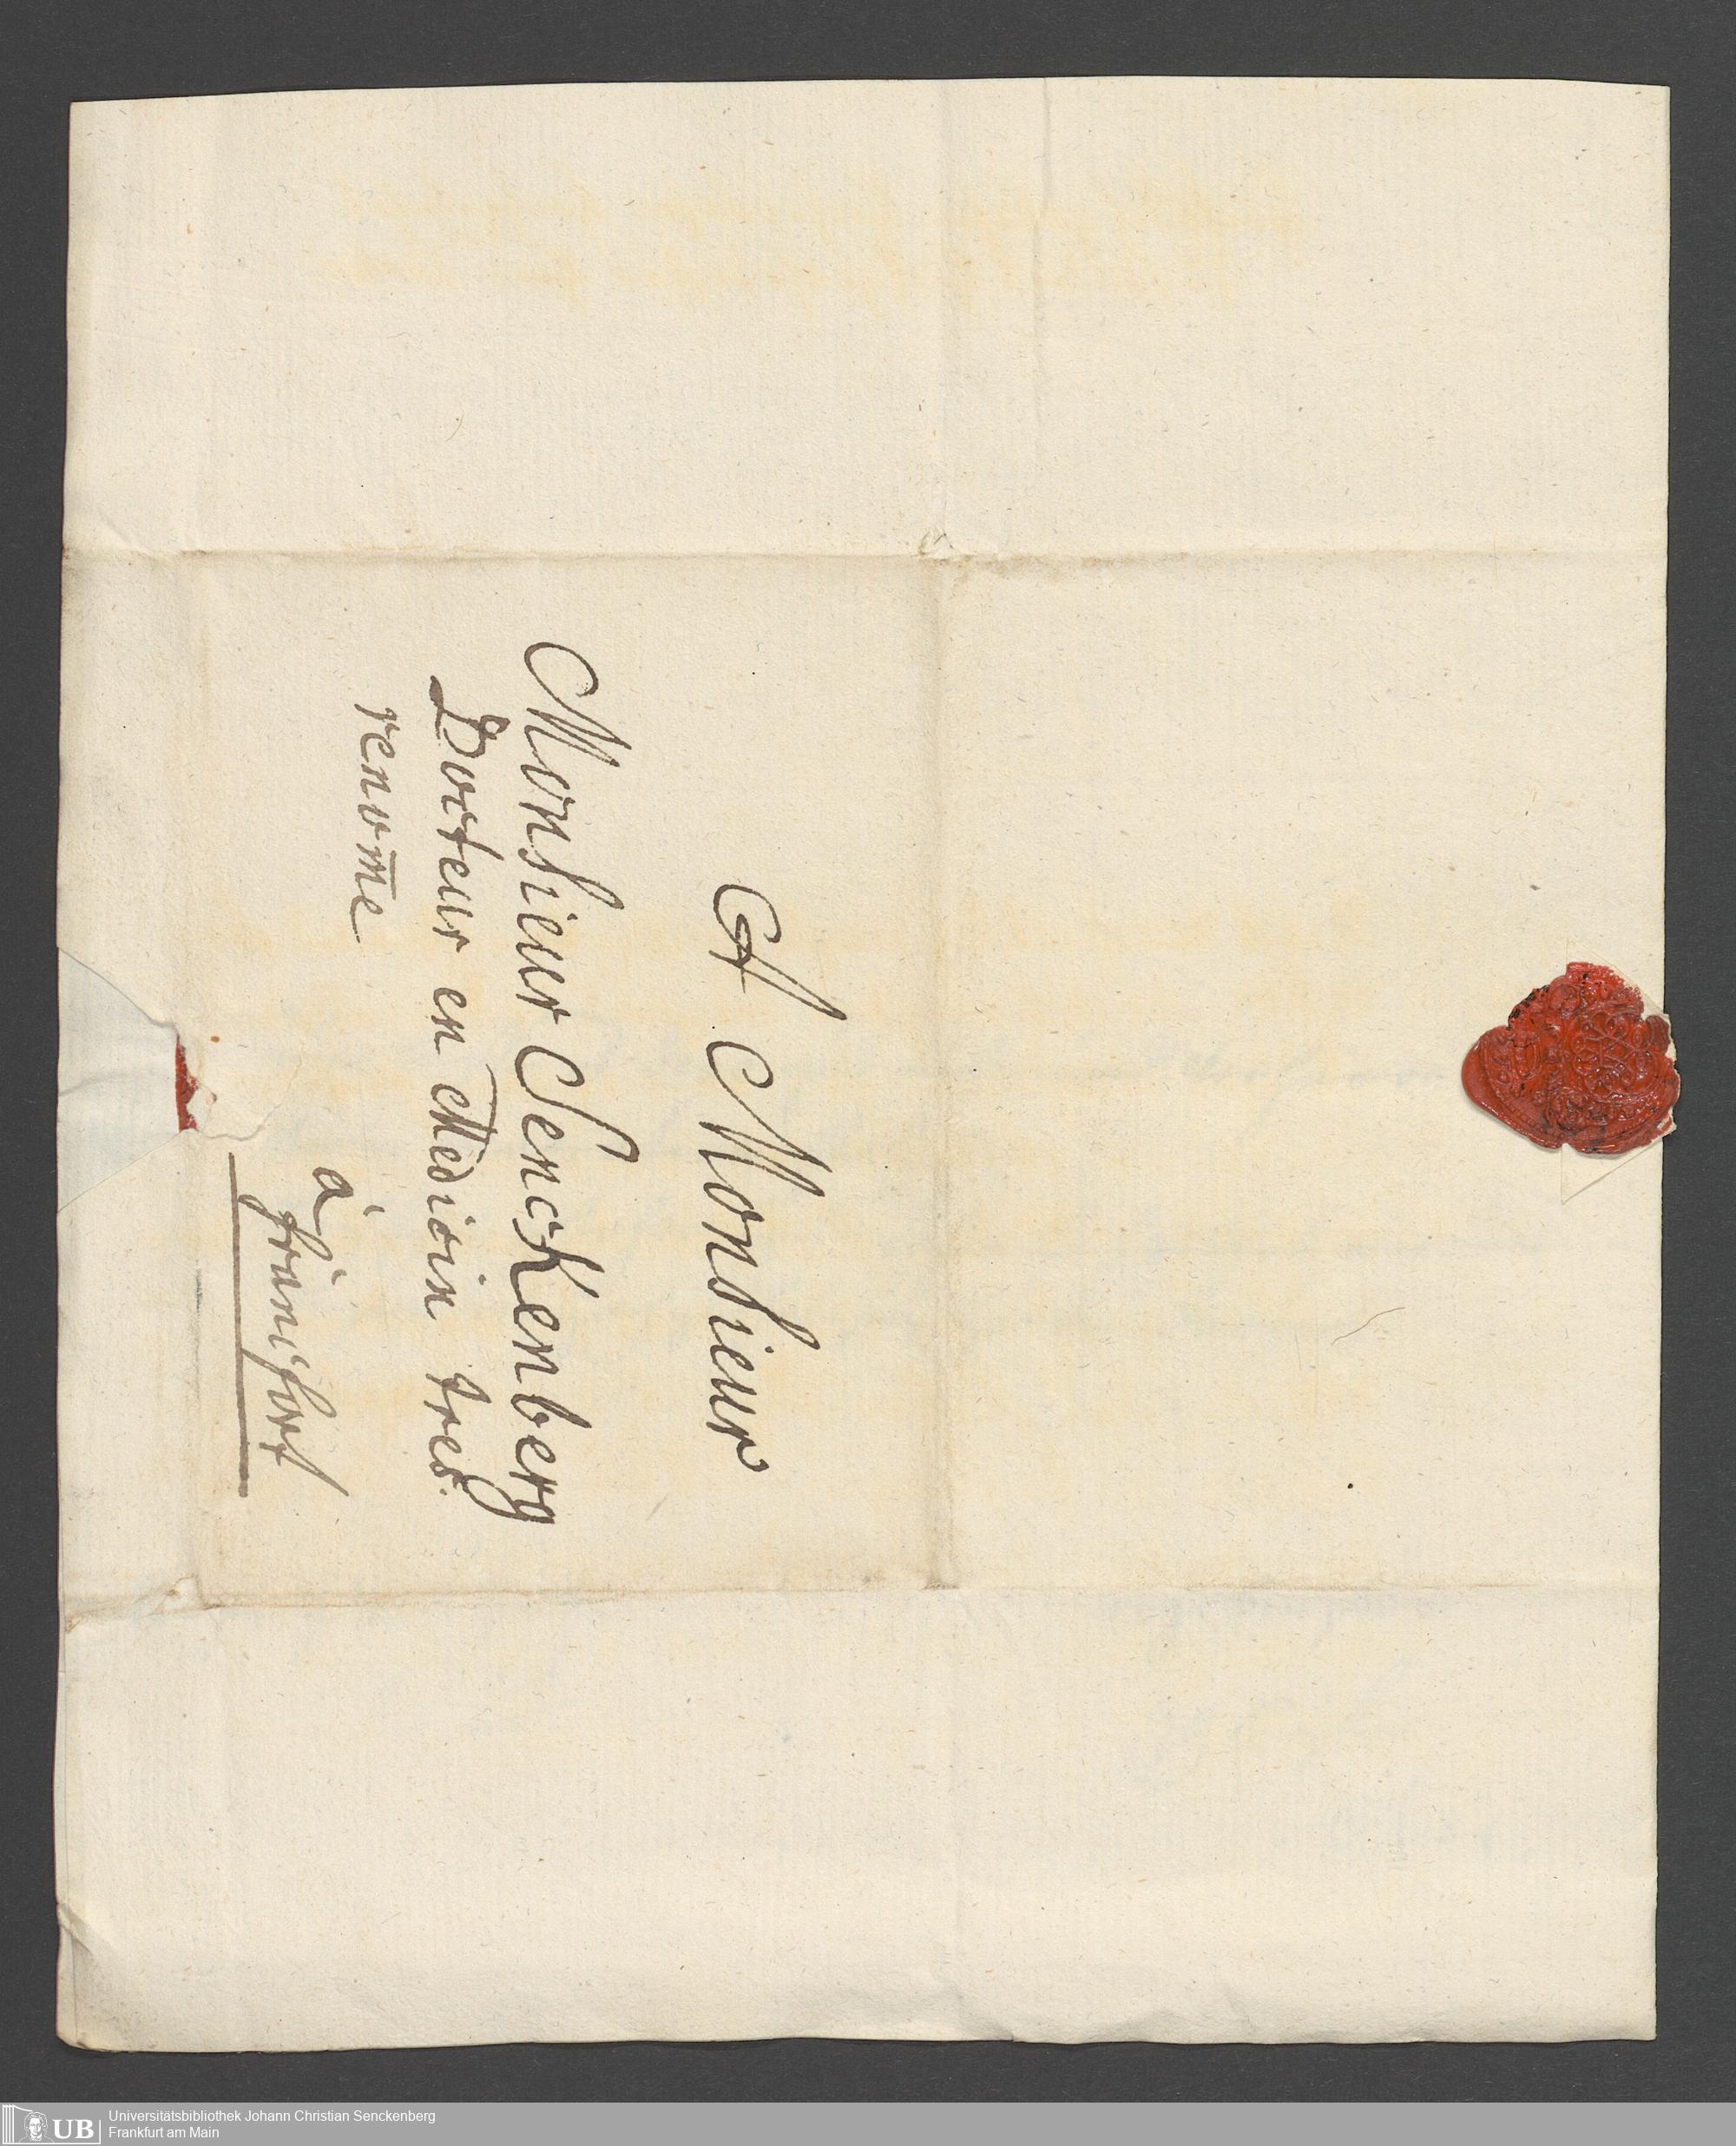 A Monsieur
Monsieur Senckenberg
Docteur en Medicin tres
renom̅e
à
francfort
UB
Universitätsbibliothek Johann Christian Senckenberg
Frankfurt am Main